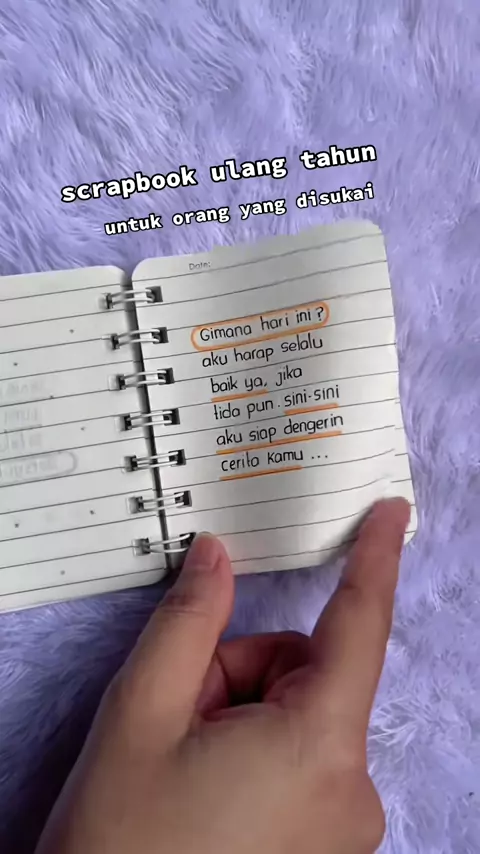 scrapbook ulang tahun
untuk orang yang disukai
Date:
Gimana hari ini?
aku harap selalu
baik ya, jika
tida pun. sini-sini
aku siap dengerin
cerita kamu ...